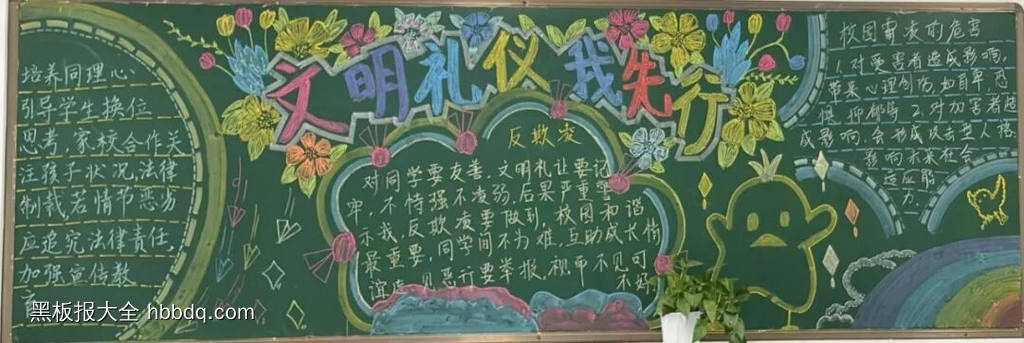 文明礼仪我先行
培养同理心
引导学生换位
思考，家校合作关
注孩子状况法律
制裁若情节恶劣
应追究法律责任，
加强宣传教
反欺凌
对同学要友善，文明礼让要记
牢，不恃强不凌弱，后果严重
示我反欺凌要做到，校园和谐
最重要，同学间不为难，互助成长情
谊 见恶行要举报，视而不见可
不好
校园霸凌的危害
1.对受害者造成影响，
带来心理创伤，如自卑，恐
惧抑郁等 2.对加害者造
成影响，会形成攻击型人格
影响未来社会
适应能
力.
黑板报大全 hbbdq.com